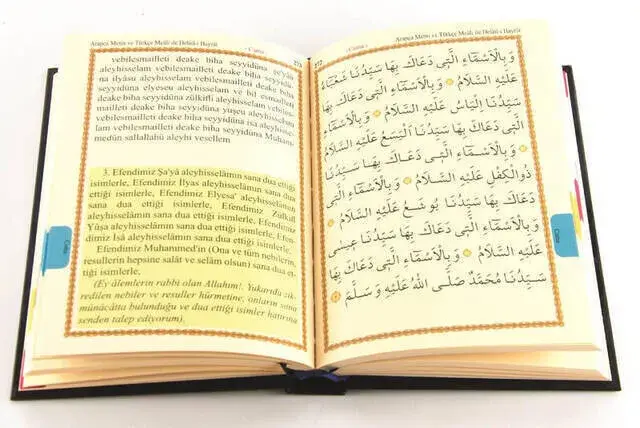 Arapça Metin ve Türkçe Meâli ile Delâil-i Hayrât
- Cuma -
273
vebilesmailleti deake biha seyyidüna şe'yâü
aleyhisselam vebilesmailleti deake biha seyyidü-
na ilyâsu aleyhisselam vebilesmailleti deake biha
seyyidüna elyeseu aleyhisselam ve bil esmailleti
deake biha seyyidüna zülkifli aleyhisselam vebi-
lesmailleti deake biha seyyidüna yuşeu aleyhisse-
lam vebilesmailleti deake biha seyyidüna isa aleyhisse-
lam vebilesmailleti deake biha seyyidüna Muham-
medün sallallahü aleyhi vesellem
3. Efendimiz Şa'yâ aleyhisselâmın sana dua ettiği
isimlerle, Efendimiz İlyas aleyhisselâmın sana dua
ettiği isimlerle, Efendimiz Elyesa' aleyhisselâmın
sana dua ettiği isimlerle, Efendimiz Zülkifl
aleyhisselâmın sana dua ettiği isimlerle, Efendimiz
Yûşa aleyhisselâmın sana dua ettiği isimlerle, Efen-
dimiz İsâ aleyhisselâmın sana dua ettiği isimlerle,
Efendimiz Muhammed'in (Ona ve tüm nebilerin,
resullerin hepsine salât ve selâm olsun) sana dua et-
tiği isimlerle,
(Ey âlemlerin rabbi olan Allahım!. Yukarıda zik-
redilen nebiler ve resuller hürmetine, onların sana
münâcâtta bulunduğu ve dua ettiği isimler hatırına
senden talep ediyorum).
Cuma
272
- Cuma -
Arapça Metin ve Türkçe Meâli ile Delâil-i Hayrât
وَبِالْاَسْمَاءِ الَّتِى دَعَاكَ بِهَا سَيِّدُنَا شَعْيَاءُ
عَلَيْهِ السَّلَامُ وَبِالْاَسْمَاءِ الَّتِى دَعَاكَ بِهَا
سَيِّدُنَا اِلْيَاسُ عَلَيْهِ السَّلَامُ وَبِالْاَسْمَاءِ
الَّتِى دَعَاكَ بِهَا سَيِّدُنَا الْيَسَعُ عَلَيْهِ السَّلَامُ
وَبِالْاَسْمَاءِ الَّتِى دَعَاكَ بِهَا سَيِّدُنَا
ذُو الْكِفْلِ عَلَيْهِ السَّلَامُ وَبِالْاَسْمَاءِ الَّتِى
دَعَاكَ بِهَا سَيِّدُنَا يُوشَعُ عَلَيْهِ السَّلَامُ
وَبِالْاَسْمَاءِ الَّتِى دَعَاكَ بِهَا سَيِّدُنَا عِيسٰى
عَلَيْهِ السَّلَامُ وَبِالْاَسْمَاءِ الَّتِى دَعَاكَ بِهَا
سَيِّدُنَا مُحَمَّدٌ صَلَّى اللّٰهُ عَلَيْهِ وَسَلَّمَ
Cuma